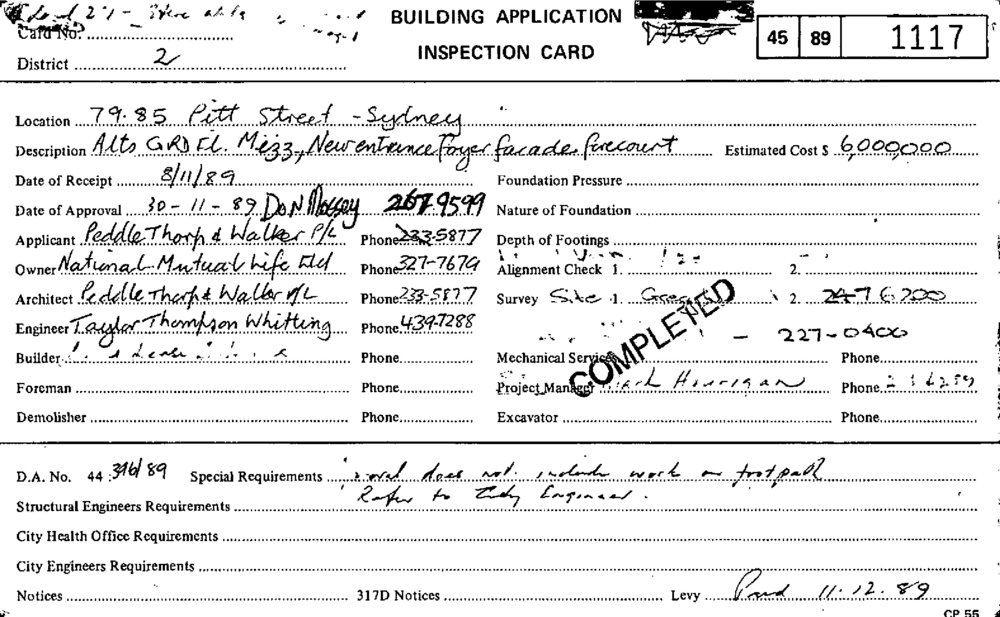 BUILDING APPLICATION
INSPECTION CARD
45 89 1117
Card No.
District 2
Location 79.85 Pitt Street - Sydney
Description Alts GRD Fl. Mezz, New entrance foyer facade, forecourt Estimated Cost $ 6,000,000
Date of Receipt 8/11/89 Foundation Pressure
Date of Approval 30-11-89 Don 267 9599 Nature of Foundation
Applicant Peddle Thorp & Walker P/L Phone 233-5877 Depth of Footings
Owner National Mutual Life Phone 327-7679 Alignment Check 1. 2.
Architect Peddle Thorp & Walker P/L Phone 233-5877 Survey Site 1 2. 247 6200
Engineer Taylor Thompson Whitting Phone 439-7288 - 227-0400
Builder Phone Mechanical Services Phone
COMPLETED
Foreman Phone Project Manager Hourigan Phone
Demolisher Phone Excavator Phone
D.A. No. 44:396/89 Special Requirements does not include work on footpath
Refer to City Engineer.
Structural Engineers Requirements
City Health Office Requirements
City Engineers Requirements
Notices 317D Notices Levy Paid 11.12.89
CP 55